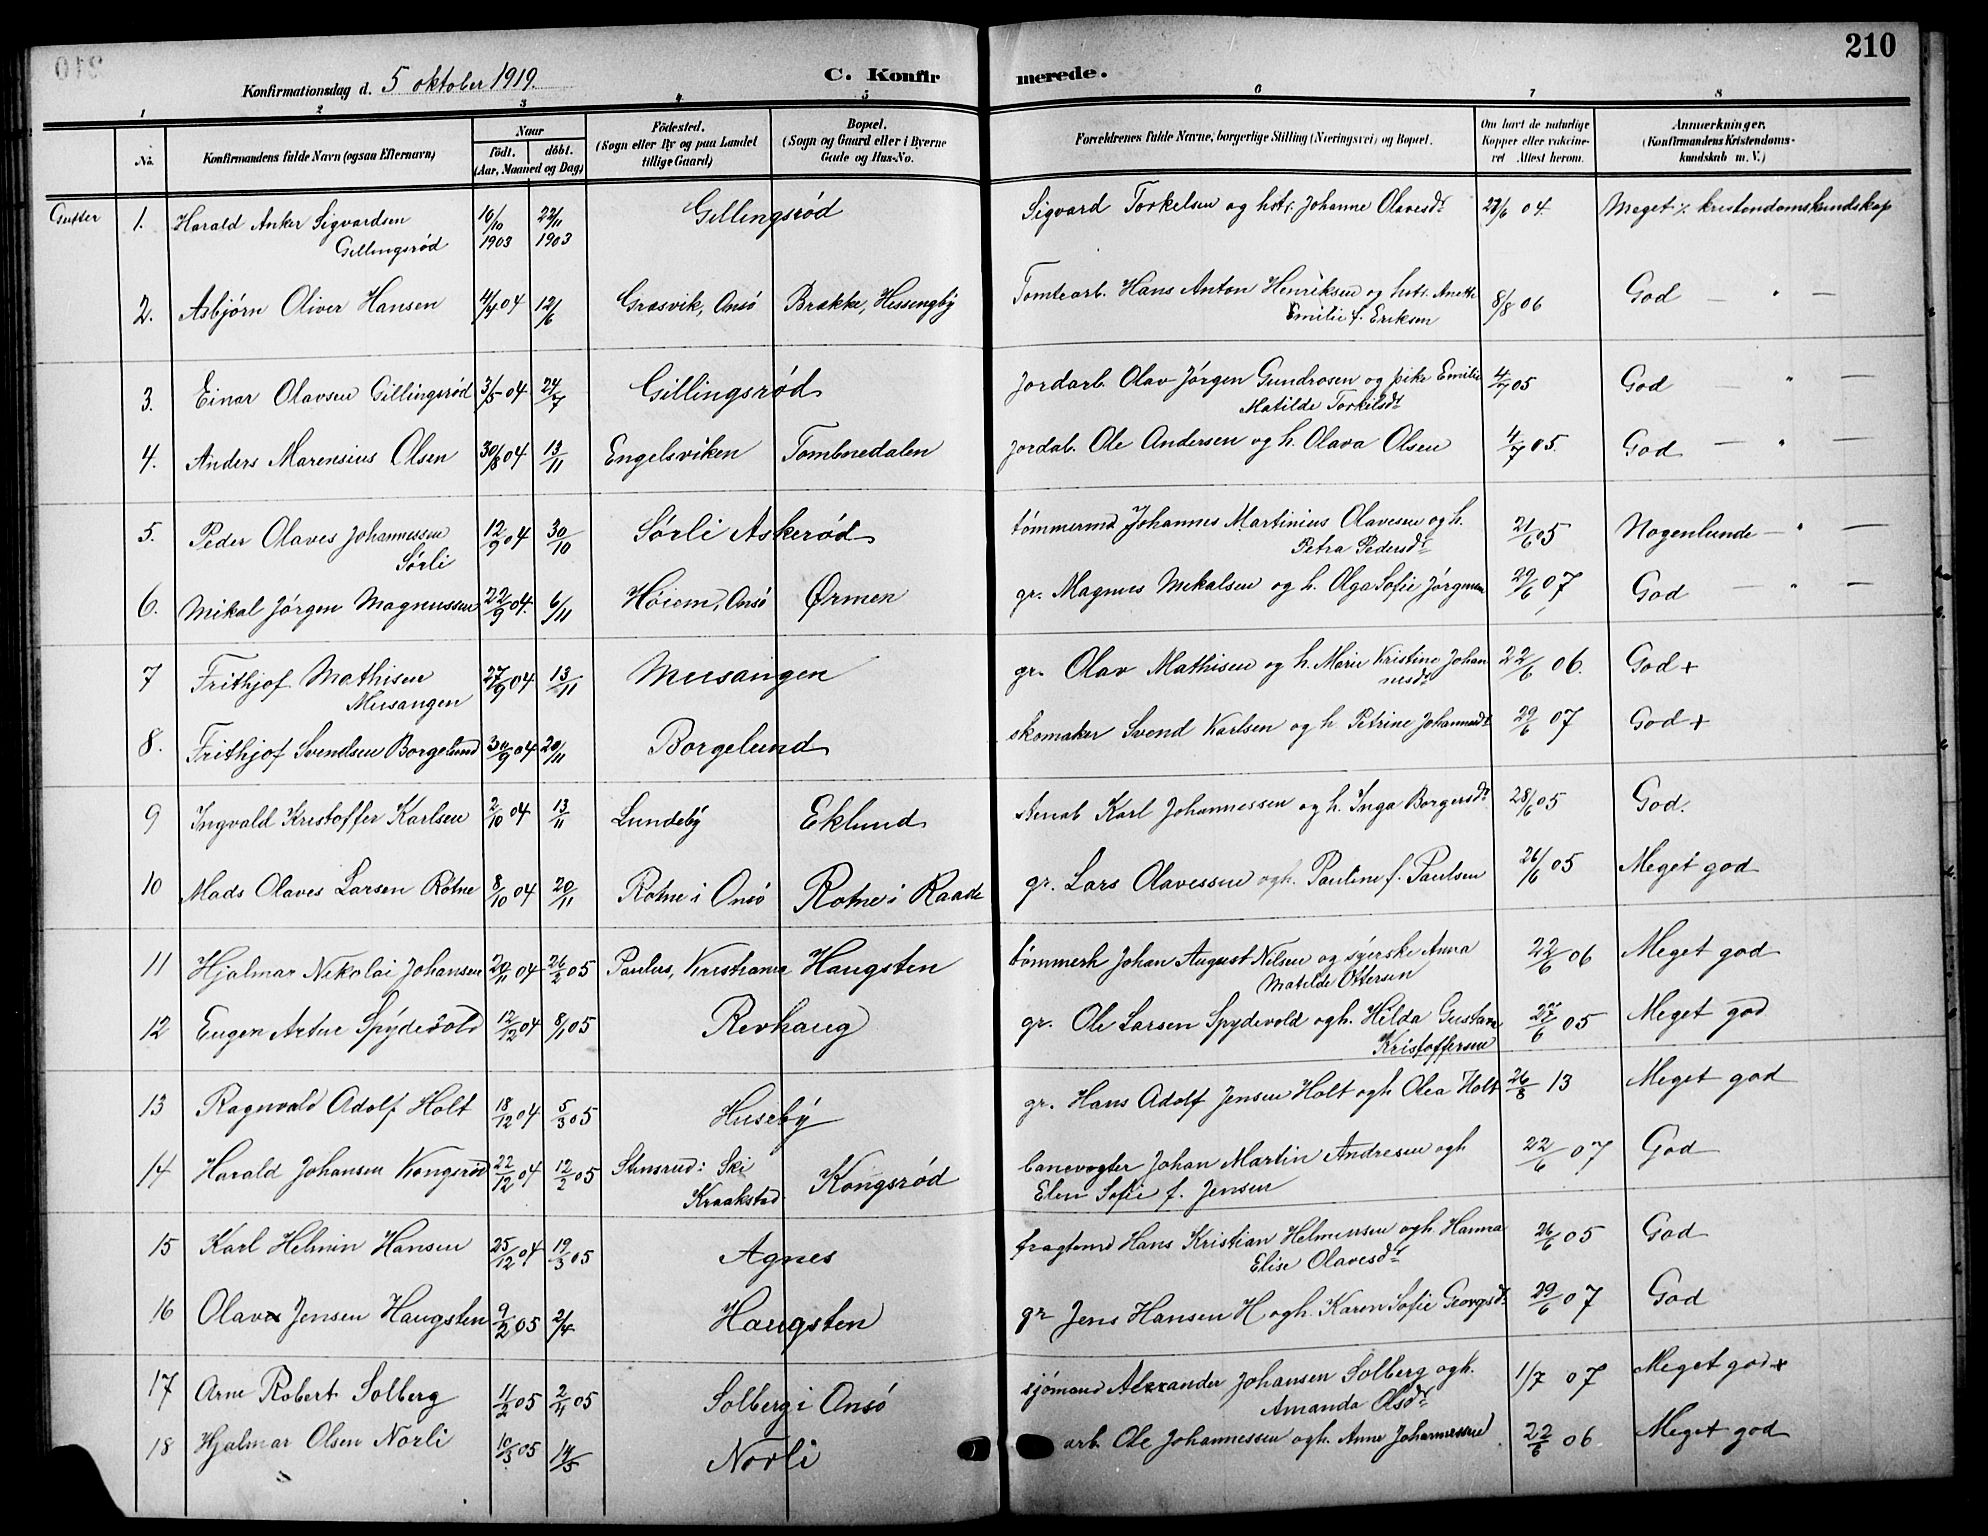 210
Konfirmationsdag d. 5 oktober 1919.
C. Konfirmerede.
1 2 3 4 5 6 7 8
No. Konfirmandens fulde Navn (ogsaa Efternavn) Naar födt. döbt. (Aar, Maaned og Dag) Födested. (Sogn eller By og paa Landet tillige Gaard) Bopæl. (Sogn og Gaard eller i Byerne Gade og Hus-No. Forældrenes fulde Navne, borgerlige Stilling (Næringsvei) og Bopæl. Om havt de naturlige Kopper eller vaccineret Attest herom. Anmærkninger. (Konfirmandens Kristendomskundskab m. V.)
Gutter 1. Harald Anker Sigvardsen 10/10 1903 22/11 1903 Gillingsrød Sigvard Torkelsen og hstr. Johanne Olavesdt 28/6 04. Meget % kristendomskundskap
Gillingsrød
2. Asbjørn Oliver Hansen 4/4 04 12/6 Græsvik, Onsö Brække, Hessengby Tomtearb. Hans Anton Henriksen og hstr. Anette 8/8 06 God — " —
Emilie f. Eriksen
3. Einar Olavsen Gillingsrød 3/5 04 24/7 Gillingsrød Jordarb. Olav Jørgen Gundrosen og pike Emilie 4/7 05 God " —
Matilde Torkilsdt
4. Anders Marensius Olsen 30/8 04 13/11 Engelsviken Tombnedalen Jordab. Ole Andersen og h. Olava Olsen 4/7 05. God — " —
5. Peder Olaves Johannessen 12/9 04 30/10 Sørli Askerød tömmermd Johannes Martinius Olavesen og h. 21/6 05 Nogenlunde — " —
Sørli Petra Pedersdt
6. Mikal Jørgen Magnussen 22/9 04. 6/11 Höiem, Onsö Ørmen gr. Magnus Mekalsen og h. Olga Sofie Jörgensen 29/6 07 God — " —
7 Frithjof Mathisen 27/9 04 13/11 Musangen gr. Olav Mathisen og h. Marie Kristine Johan 22/6 06. God +
Musangen nesdt
8. Frithjof Svendsen Borgelund 30/9 04 20/11 Borgelund skomaker Svend Karlsen og h. Petrine Johannesdt 29/6 07 God +
9 Ingvald Kristoffer Karlsen 2/10 04 13/11 Lundeby Eklund stenab Karl Johannessen og h. Inga Borgersdt 28/6 05 God.
10 Mads Olaves Larsen Rötne 8/10 04 20/11 Rötne i Onsö Rötne i Raade gr. Lars Olavessen og h. Pauline f. Paulsen 26/6 05 Meget god
11 Hjalmar Nikolai Johansen 20/11 04 26/2 05 Paulus, Kristiania Haugsten tömmerh Johan August Nilsen og syerske Anna 22/6 06 Meget god
Matilde Ottersen
12 Eugen Artur Spydevold 12/12 04 8/1 05 Revhaug gr. Ole Larsen Spydevold og h. Hilda Gustava 27/6 05 Meget god
Kristoffersen
13 Ragnvald Adolf Holt 18/12 04 5/3 05 Huseby gr. Hans Adolf Jensen Holt og h Olea Holt 26/8 13 Meget god
14 Harald Johansen Kongsrød 22/12 04 12/2 05 Stensrud: Ski Kongsrød banevogter Johan Martin Andresen og h 22/6 07 God
Kraakstad Elen Sofie f. Jensen
15 Karl Helmin Hansen 25/12 04 19/3 05 Agnes fragtemd Hans Kristian Helmensen og h. Hanna 26/6 05 God
Elise Olavesdt
16 Olav Jensen Haugsten 9/2 05 2/4 Haugsten gr Jens Hansen H og h. Karen Sofie Georgsdt 29/6 07 God
17 Arne Robert Solberg 11/2 05 2/11 05 Solberg i Onsö sjömand Alexander Johansen Solberg og h. 1/7 07 Meget god +
Amanda Olsdt
18 Hjalmar Olsen Norli 10/3 05 14/5 Norli arb. Ole Johannessen og h. Anne Johannessen 22/6 06 Meget god